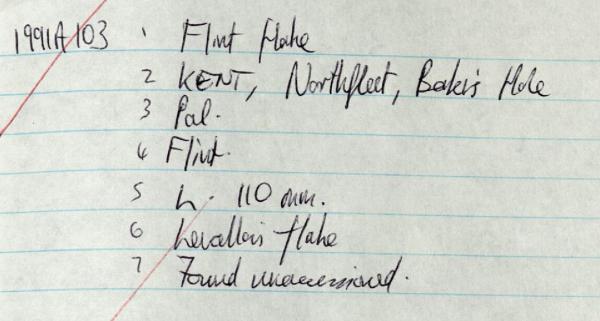 1991A103 1 Flint flake
2 KENT, Northfleet, Baker's Hole
3 Pal.
4 Flint.
5 L. 110 mm.
6 Levallois flake
7 Found unaccessioned.